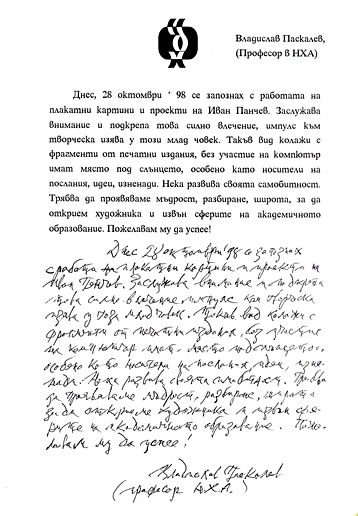 Владислав Паскалев,
(Професор в НХА)
Днес, 28 октомври ' 98 се запознах с работата на
плакатни картини и проекти на Иван Панчев. Заслужава
внимание и подкрепа това силно влечение, импулс към
творческа изява у този млад човек. Такъв вид колажи с
фрагменти от печатни издания, без участие на компютър
имат място под слънцето, особено като носители на
послания, идеи, изненади. Нека развива своята самобитност.
Трябва да проявяваме мъдрост, разбиране, широта, за да
открием художника и извън сферите на академичното
образование. Пожелавам му да успее!
Днес 28 октомври '98 се запознах
с работа на плакатни картини и проекти на
Иван Панчев. Заслужава внимание и подкрепа
това силно влечение импулс към творческа
изява у този млад човек. Такъв вид колажи с
фрагменти от печатни издания, без участие
на компютър имат място под слънцето,
особено като носители на послания, идеи, изне-
нади. Нека развива своята самобитност. Трябва
да проявяваме мъдрост, разбиране, широта
за да открием художника и извън сфе-
рите на академичното образование. Поже-
лавам му да успее!
Владислав Паскалев
(професор Н.Х.А.)